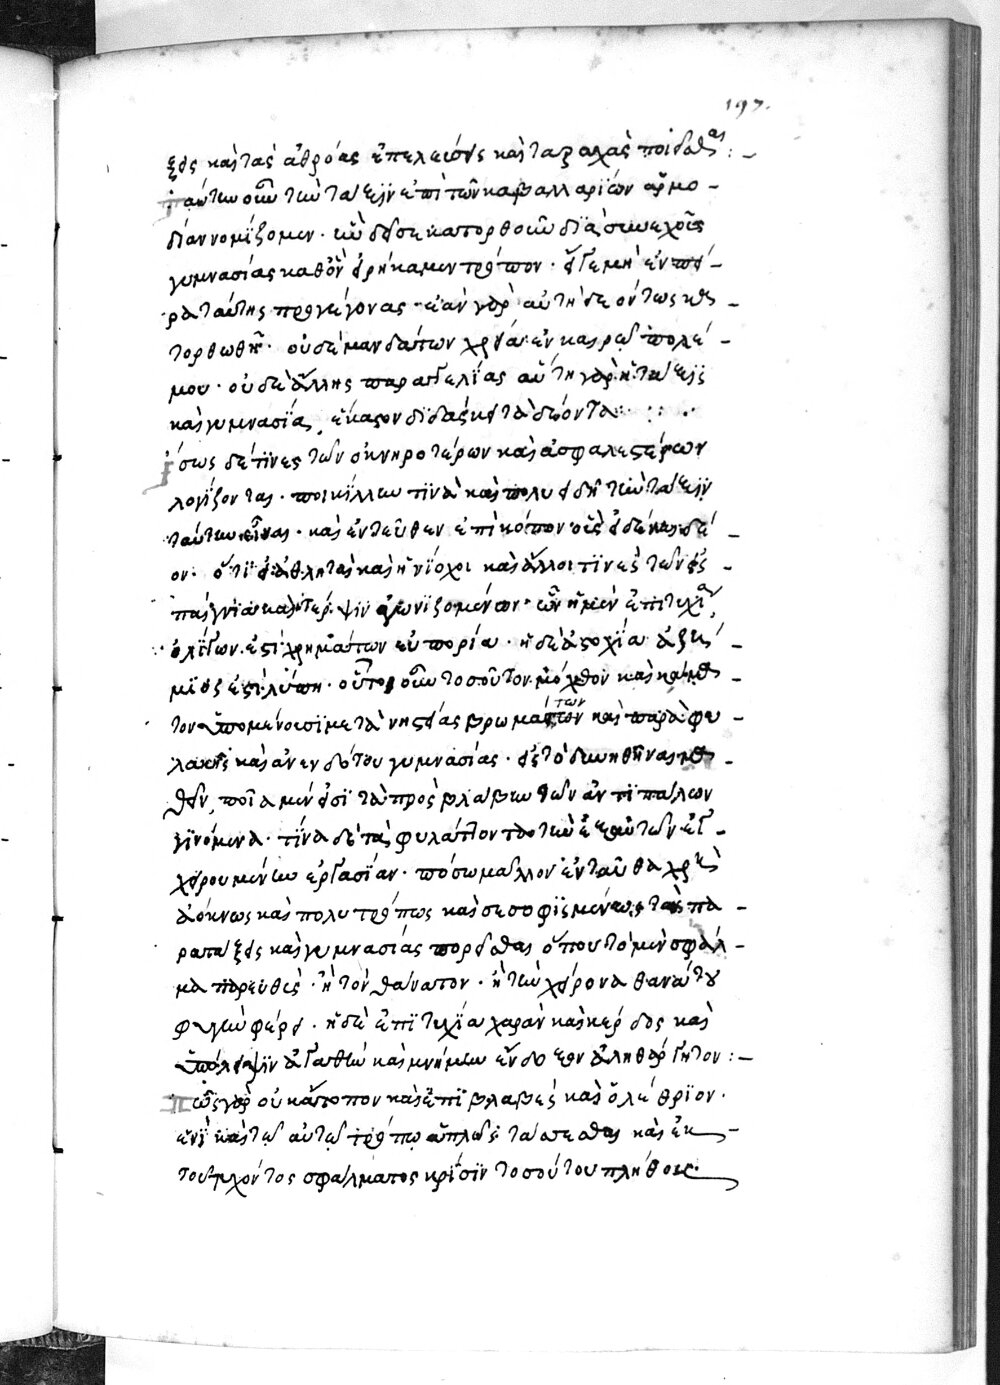 197.
ξεις καὶ τὰς ἀθρόας ἐπελεύσεις καὶ ταραχὰς ποιεῖσθαι :-
Ταύτην οὖν τὴν τάξιν ἐπὶ τῶν καβαλλαρίων ἁρμο-
δίαν νομίζομεν· εὖ δὲ σε κατορθοῦν διὰ συνεχοῦς
γυμνασίας καθ' ὃν εἰρήκαμεν τρόπον· εἴγε μὴ ἐν πεί-
ρᾳ ταύτης προγέγονας· ἐὰν γὰρ αὕτη δεόντως κα-
τορθωθῇ· οὐδὲ μανδάτων χρεία ἐν καιρῷ πολέ-
μου· οὐδὲ ἄλλης παραγγελίας αὐτὴ γὰρ ἡ τάξις
καὶ γυμνασία, ἕκαστον διδάσκει τὰ δέοντα
ἴσως δέ τινες τῶν ὀκνηροτέρων καὶ ἀσφαλεστέρων
λογίζονται· ποικίλην τινὰ καὶ πολυειδῆ τὴν τάξιν
ταύτην εἶναι· καὶ ἐντεῦθεν ἐπίκοπον οἷς εἰδέναι δέ-
ον· ὅτι εἰ ἀθληταὶ καὶ ἡνίοχοι καὶ ἄλλοι τινὲς τῶν εἰς
παίγνια καὶ τέρψιν ἀγωνιζομένων· ὧν ἡ μὲν ἐπιτυχία,
ὀλίγων ἐστὶ χρημάτων εὐπορία· ἡ δὲ ἀστοχία ἀζη-
μίος ἐστὶ λύπη· οὗτοι οὖν τοσοῦτον μόχθον καὶ κάμα-
τον ὑπομένουσι μετὰ νηστείας βρωμάτων καὶ παρα φυ-
λακῆς καὶ ἀνενδότου γυμνασίας· εἰς τὸ δυνηθῆναι μα-
θεῖν, ποῖα μὲν εἰσὶ τὰ πρὸς βλάβην τῶν ἀντιπάλων
γινόμενα· τίνα δὲ τὰ φυλάττοντα τὴν ἐξ αὐτῶν ἐγ-
χειρουμένην ἐργασίαν· πόσῳ μᾶλλον ἐνταῦθα χρὴ
ἀόκνως καὶ πολυτρόπως καὶ σεσοφισμένως τὰς πα-
ρατάξεις καὶ γυμνασίας πορεῖσθαι ὅπου τὸ μὲν σφάλ-
μα παρευθὺς· ἢ τὸν θάνατον· ἢ τὴν χείρονα θανάτου
φυγὴν φέρει· ἡ δὲ ἐπιτυχία χαρὰν καὶ κέρδος καὶ
ὑπόληψιν ἀγαθὴν καὶ μνήμην ἔνδοξον ἀληθάργητον :-
Πῶς γὰρ οὐκ ἄτοπον καὶ ἐπιβλαβὲς καὶ ὀλέθριον·
ἑνὶ καὶ τῷ αὐτῷ τρόπῳ ἁπλῶς τάσσεσθαι καὶ ἐκ
τοῦ τυχόντος σφάλματος κρίσιν τοσούτου πλήθους·